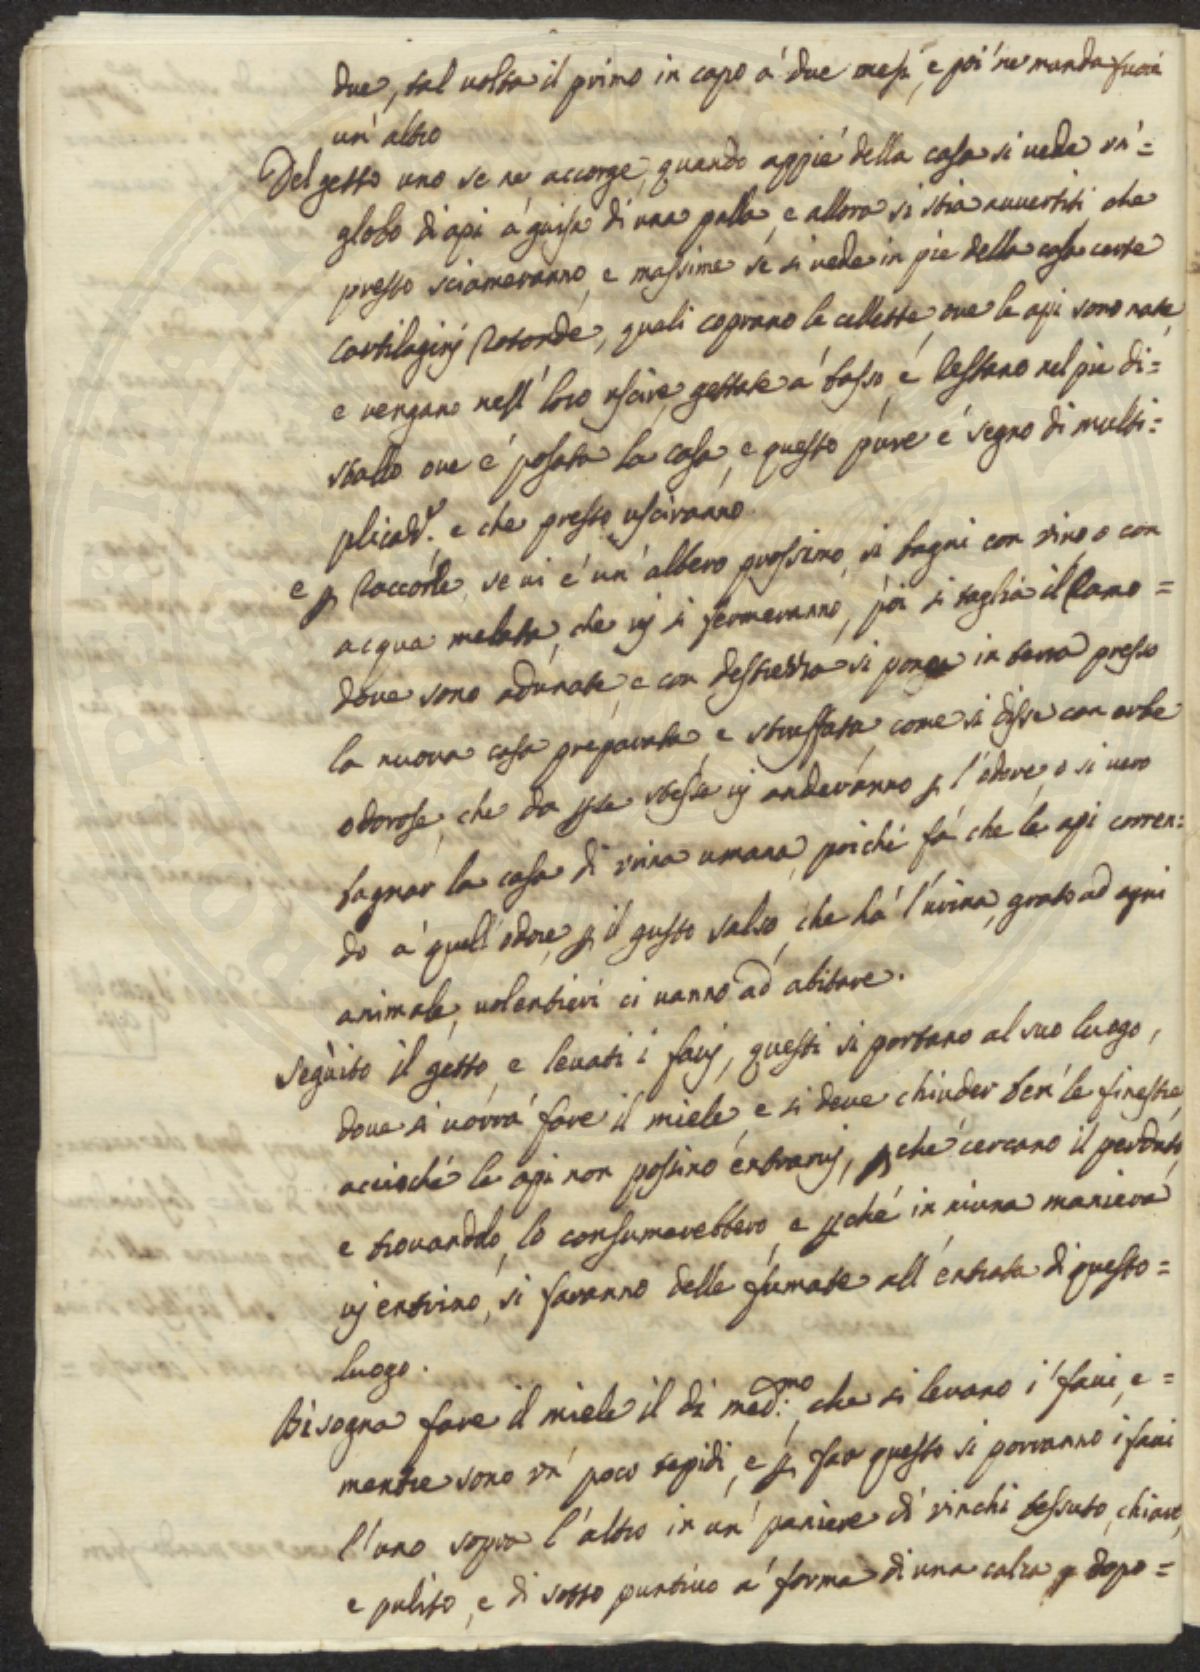 due, tal volta il primo in capo á due mesi, e poi ne manda fuora
un' altro
Del getto uno se ne accorge, quando appié della casa si vede un'=
globo di api á guisa di una palla, e allora si stia avvertiti, che
presto sciameranno, e massime se si vede in pie della casa certe
cartilaginj rotonde, quali coprano le cellette, ove le api sono nate,
e vengano nell' loro uscire, gettate á basso, e restano nel pie di=
stallo ove é posata la casa, e questo pure é segno di multi=
plicaď. e che presto usciranno.
e p raccorle, se vi é un' albero prossimo, si bagni con vino o con
acqua melata, che ivj si fermeranno, poi si taglia il ramo=
dove sono adunate, e con destrezza si ponga in terra presso
la nuova casa preparata, e struffata come si disse con erbe
odorose, che da p se stesse ivj anderanno p l' odore, o si vero
bagnar la casa di vrina umana, poiché fá che le api corren=
do á quell' odore, p il gusto salso, che há l' urina, grato ad ogni
animale, volentieri ci vanno ad abitare.
Seguito il getto, e levati i favj, questi si portano al suo luogo,
dove si vorrá fare il miele, e si deve chiuder ben' le finestre,
acciochè le api non possino entrarvj, pché cercano il perduto,
e trovandolo, lo consumerebbero, e pché in niuna maniera
vj entrino, si faranno delle fumate all' entrata di questo=
luogo.
Bisogna fare il miele il dì med:mo, che si levano i favi, e=
mentre sono un' poco tepidi, e p far questo si porranno i favi
l' uno sopra l' altro in un' paniere di vinchi tessuto, chiaro,
e pulito, e di sotto puntivo á forma di una calza p dopo=